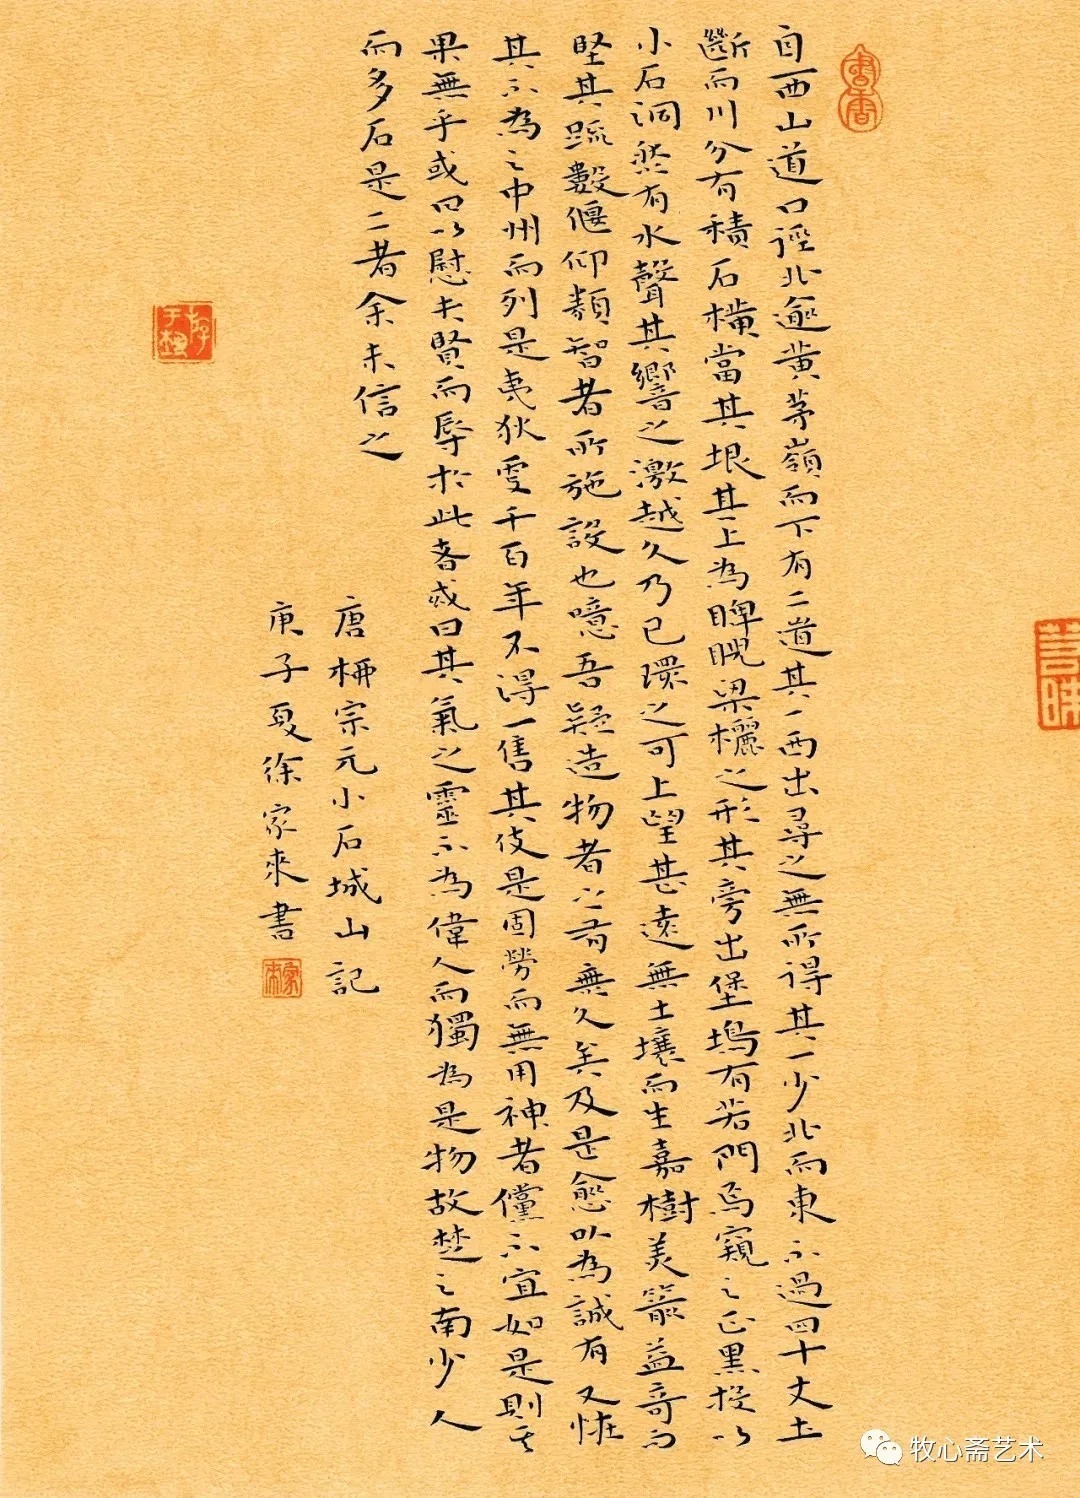 自西山道口徑北逾黃茅嶺而下有二道其一西出尋之無所得其一少北而東不過四十丈土
斷而川分有積石橫當其垠其上為睥睨梁欐之形其旁出堡塢有若門焉窺之正黑投以
小石洞然有水聲其響之激越久乃已環之可上望甚遠無土壤而生嘉樹美箭益奇而
堅其疏數偃仰類智者所施設也噫吾疑造物者之有無久矣及是愈以為誠有又怪
其不為之中州而列是夷狄更千百年不得一售其伎是固勞而無用神者儻不宜如是則其
果無乎或曰以慰夫賢而辱於此者或曰其氣之靈不為偉人而獨為是物故楚之南少人
而多石是二者余未信之
唐柳宗元小石城山記
庚子夏徐家來書
牧心斋艺术